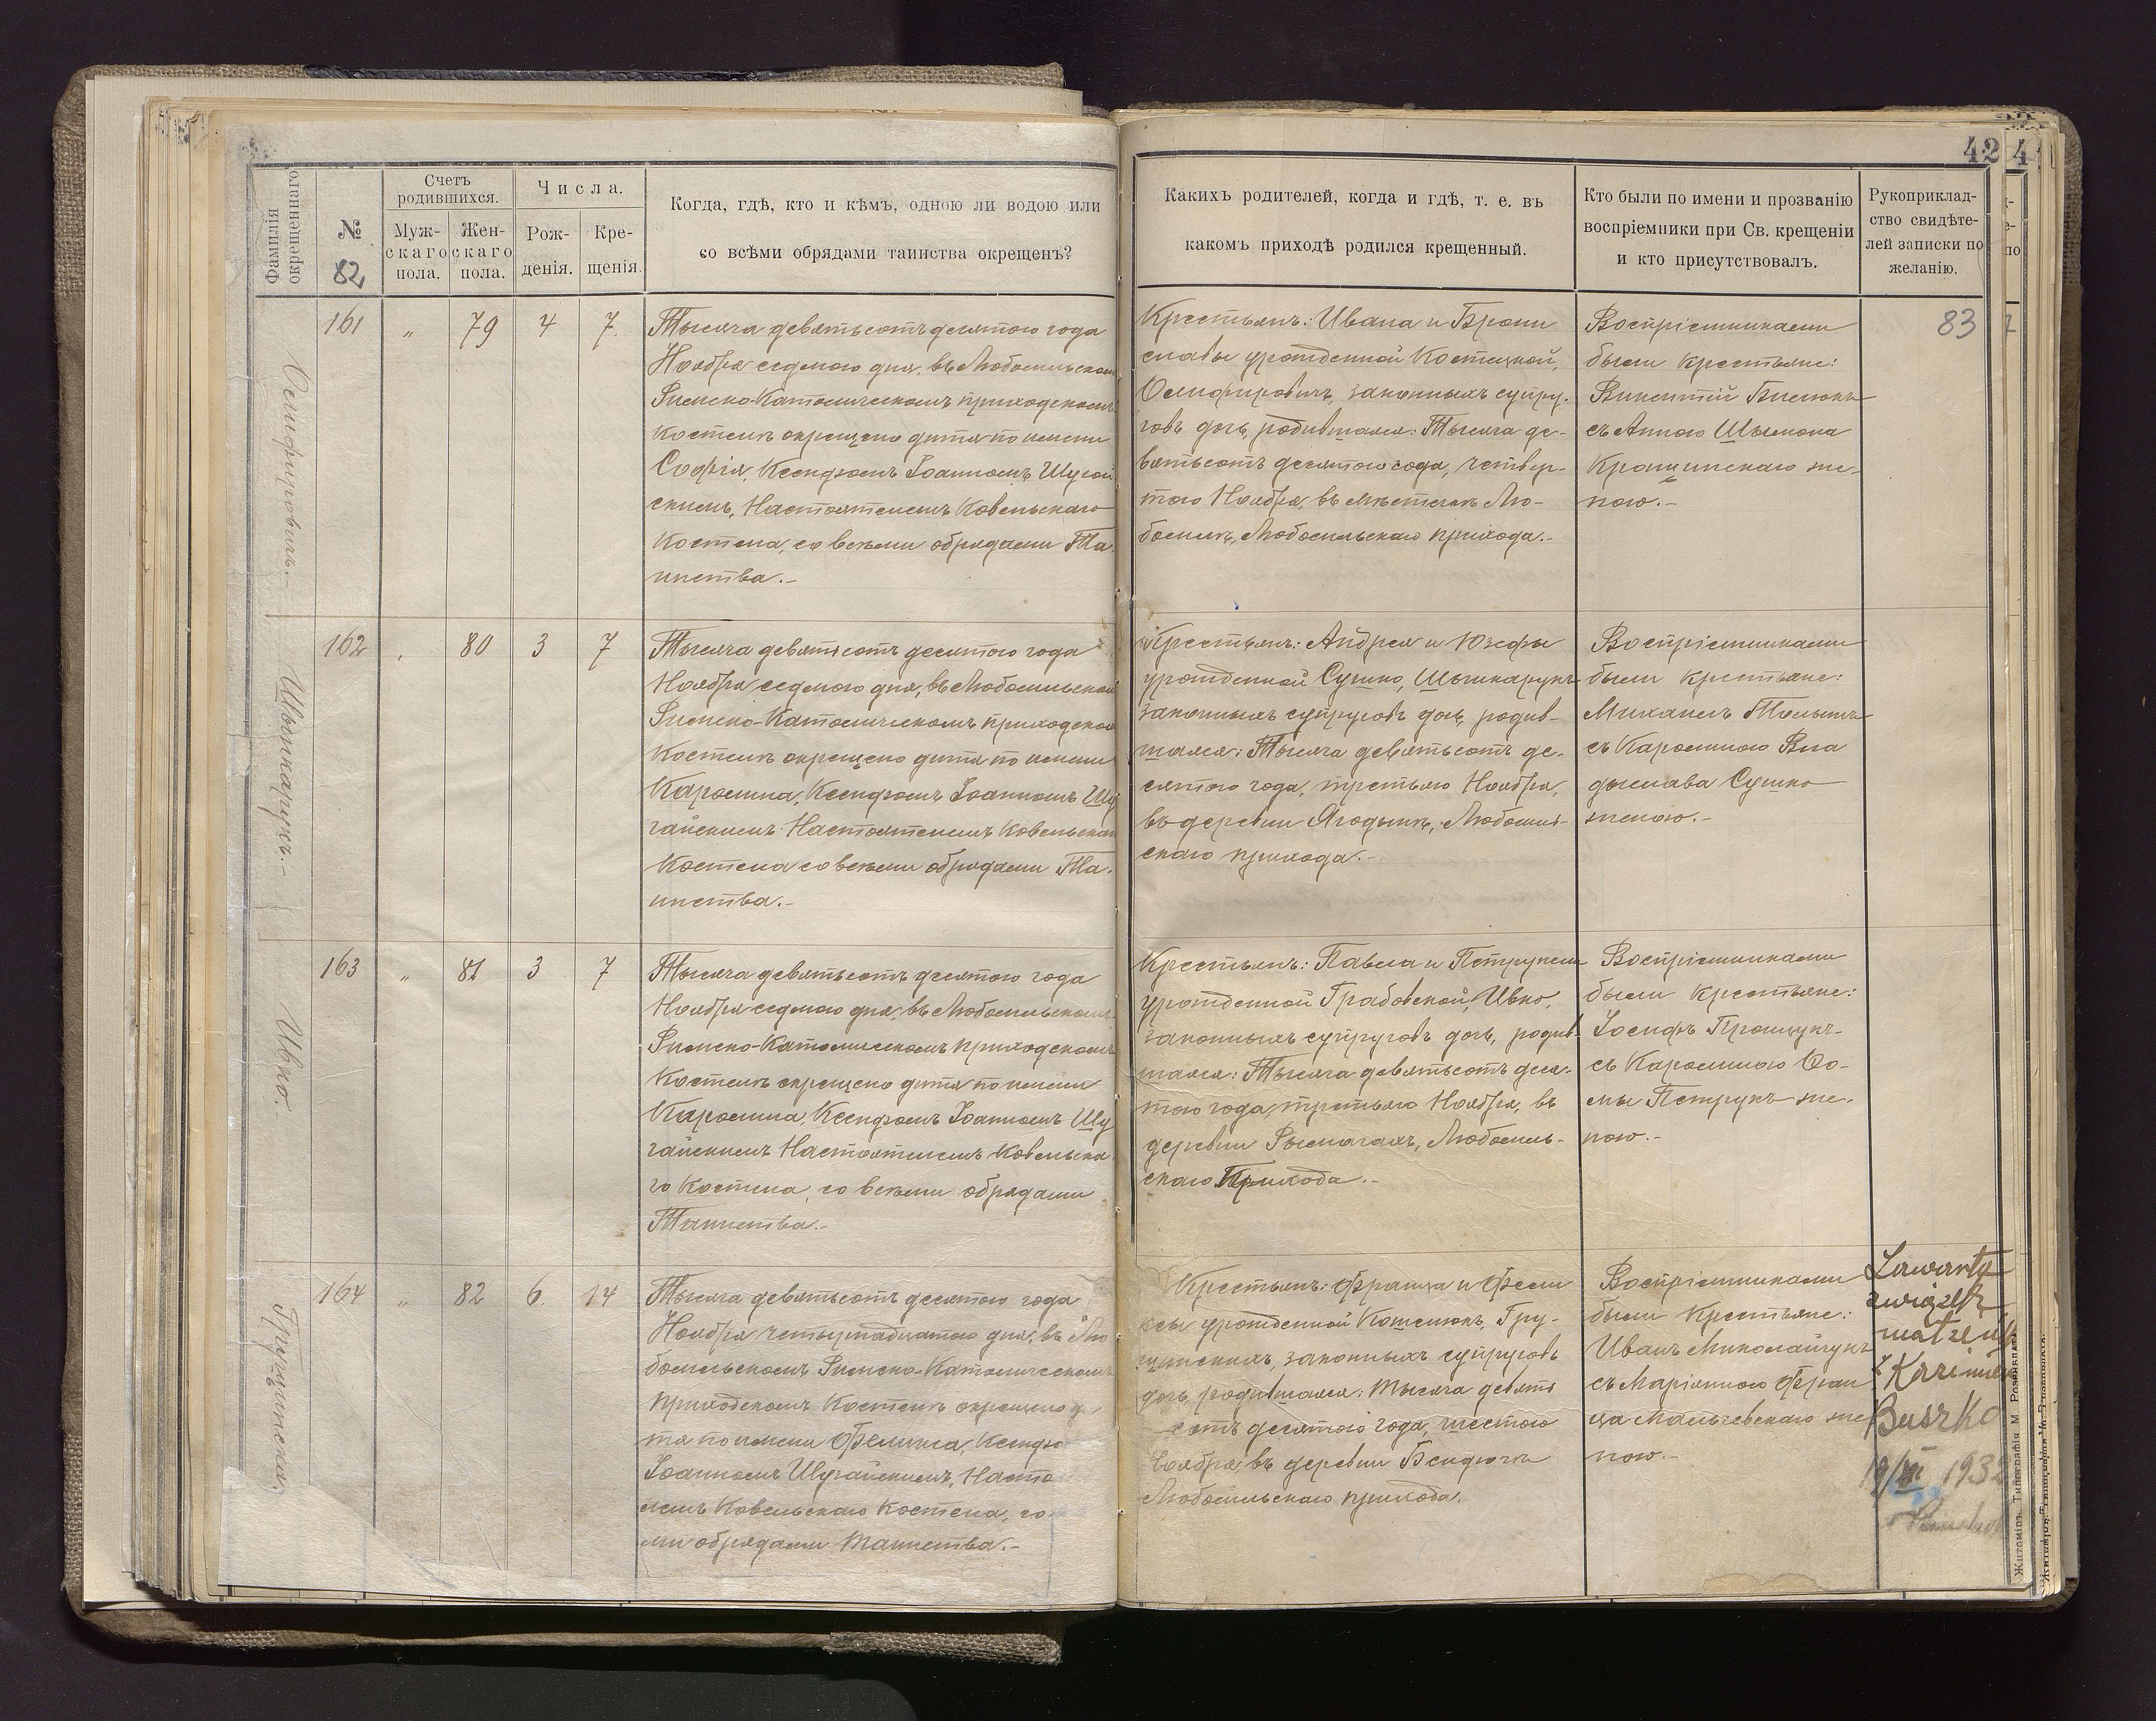 Фамилія окрещеннаго
№
82
Счетъ родившихся.
Муж-
скаго
пола.
Жен-
скаго
пола.
Числа.
Рож-
денія.
Кре-
щенія.
Когда, гдѣ, кто и кѣмъ, одною ли водою или
со всѣми обрядами таинства окрещенъ?
42
Какихъ родителей, когда и гдѣ, т. е. въ
какомъ приходѣ родился крещенный.
Кто были по имени и прозванію
воспріемники при Св. крещеніи
и кто присутствовалъ.
Рукоприклад-
ство свидѣте-
лей записки по
желанію.
83
Осмофировичъ.-
161 „ 79 4 7.
Тысяча девятьсотъ десятого года
Ноября седмого дня, въ Любомльском
Римско-Католическомъ приходскомъ
Костелѣ окрещено дитя по имени
Софія, Ксендзомъ Іоанномъ Шугай
скимъ, Настоятелемъ Ковельскаго
Костела, со всѣми обрядами Та-
инства.-
Крестьянъ: Ивана и Брони
славы урожденной Костецкой,
законныхъ супру-
говъ дочь, родившаяся: Тысяча де-
вятьсотъ десятого года, четвер-
того Ноября, въ мѣстечкѣ Лю-
бомлѣ, Любомльскаго прихода.-
Воспріемниками
были крестьяне:
Викентій
съ Анною Шымона
же-
ною.-
Шыпкарукъ.-
162 „ 80 3 7
Тысяча девятьсотъ десятого года
Ноября седмого дня, въ Любомльском
Римско-Католическомъ приходском
Костелѣ окрещено дитя по имени
Каролина, Ксендзомъ Іоанномъ Шу
гайскимъ Настоятелемъ Ковельскаго
Костела со всѣми обрядами Та-
инства.-
Крестьянъ: Андрея и Юзефы
урожденной Сушко, Шыпкарукъ
законныхъ супруговъ дочь, родив-
шаяся: Тысяча девятьсотъ де-
сятого года, третьяго Ноября,
въ деревни Ягодынѣ, Любомль-
скаго прихода.-
Воспріемниками
были крестьяне:
Михаилъ
съ Каролиною Вла
дыслава Сушко
женою.-
Ивко.
163 „ 81 3 7
Тысяча девятьсотъ десятого года
Ноября седмого дня, въ Любомльскомъ
Римско-Католическомъ приходскомъ
Костелѣ окрещено дитя по имени
Каролина, Ксендзомъ Іоанномъ Шу
гайскимъ Настоятелемъ Ковельска
го Костела, со всѣми обрядами
Таинства.-
Крестьянъ: Павла и Петрунели
урожденной Грабовской, Ивко,
законныхъ супруговъ дочь, родив-
шаяся: Тысяча девятьсотъ деся-
того года, третьяго Ноября, въ
деревни Рымачахъ, Любомль-
скаго Прихода.-
Воспріемниками
были крестьяне:
Іосифъ
съ Каролиною Ѳо-
мы Петрукъ же-
ною.-
Грущинская.
164 „ 82 6. 14
Тысяча девятьсотъ десятого года
Ноября четырнадцатого дня, въ Лю
бомльскомъ Римско-Католическомъ
Приходскомъ Костелѣ окрещено ди
тя по имени Фелиция, Ксендзо
Іоанномъ Шугайскимъ, Насто
лемъ Ковельскаго Костела, со
ми обрядами Таинства.-
Крестьянъ: Франца и
урожденной Кошелюкъ, Гру-
щинскихъ, законныхъ супруговъ
дочь, родившаяся: Тысяча девять
сотъ десятого года, шестого
Ноября, въ деревни Бендюги
Любомльскаго прихода.
Воспріемниками
были крестьяне:
Иванъ Миколайчукъ
съ Маріянною Фран
ца Мальчевскаго же
ною.-
Zawarty
związek
małżeń
z Kazimie
Buszko
1932
Житоміръ, Типографія М.